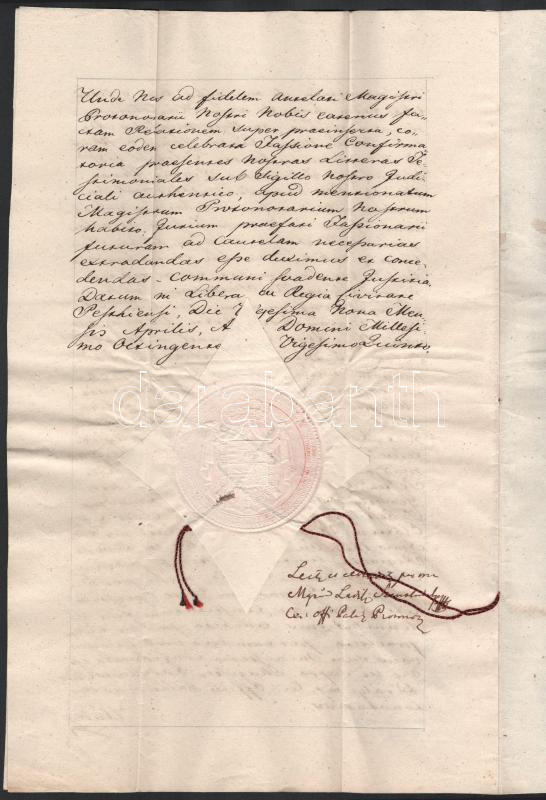 Unde Nos ad fidelem annotati Magistri
Protonotarii Nostri Nobis eatenus fa-
ctam Relationem super praeinserta, co-
ram eodem celebrata Fassione Confirma
toria praesentes Nostras Litteras Te-
stimoniales sub Sigillo Nostro Judi-
ciali authentico, apud mentionatum
Magistrum Protonotarium Nostrum
habito Jurium praefati Fassionarii
futuram ad Cautelam necessarias
extradandas esse duximus et conce-
dendas communi svadente Justitia.
Datum in Libera ac Regia Civitate
Pesthiensi, Die Vigesima Nona Men-
sis Aprilis, A Domini Millesi
mo Octingente Vigesimo Quinto.
darabanth
Lecta et per me